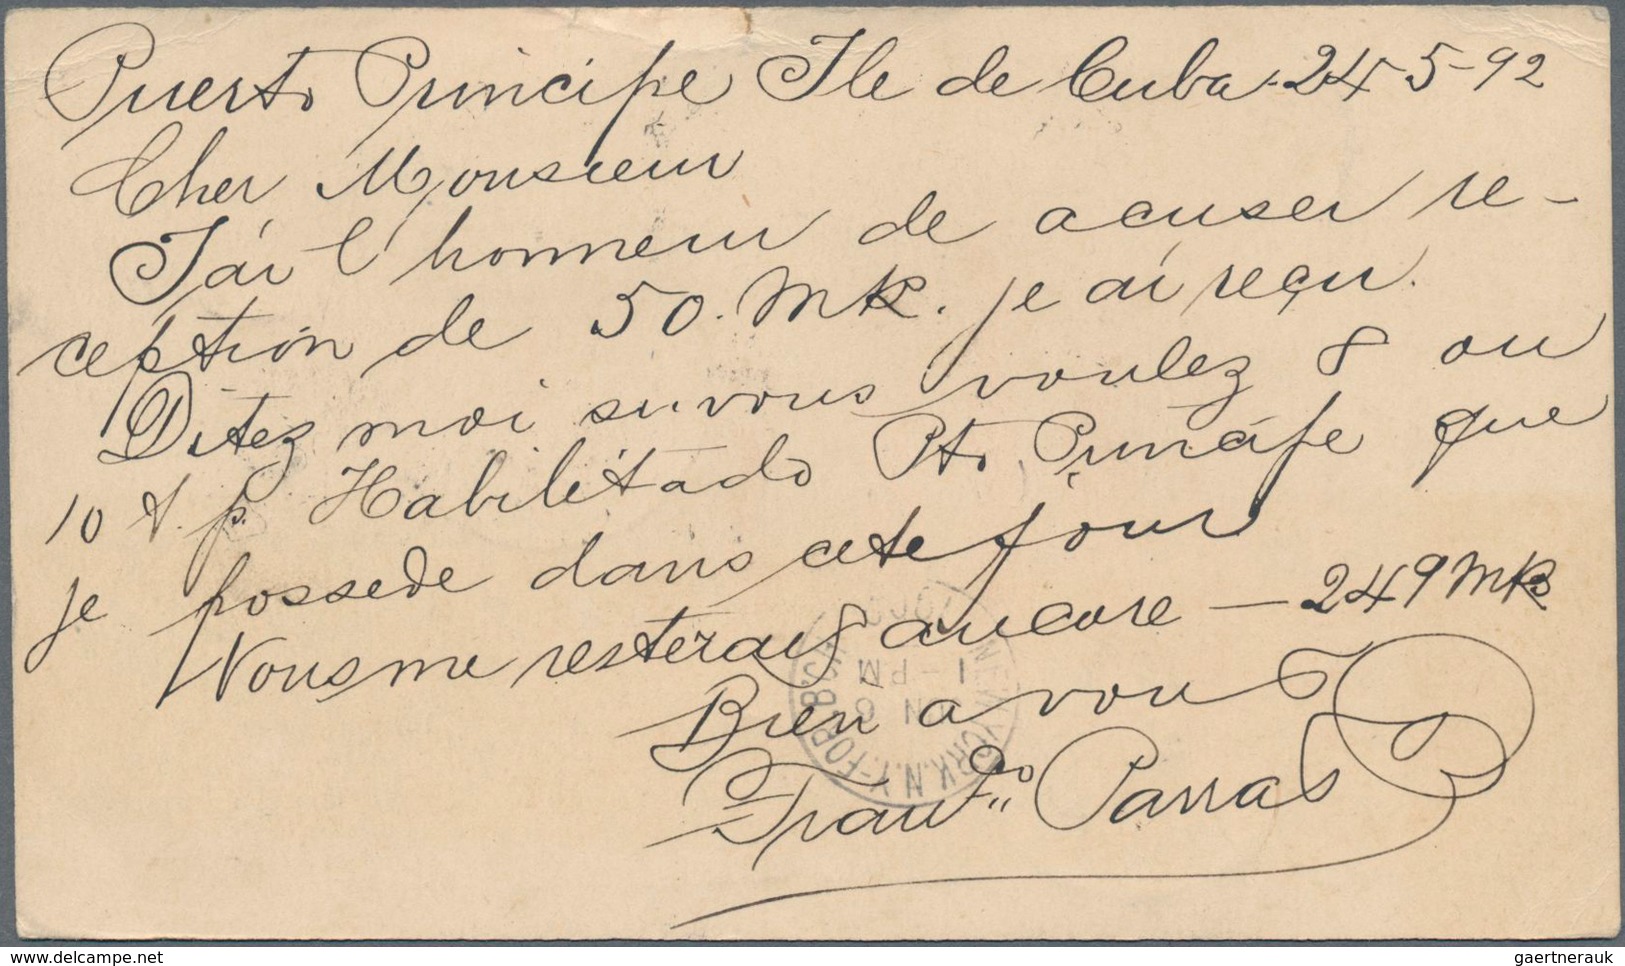 Puerto Principe Ile de Cuba. 24-5-92
Cher Monsieur
J'ai l'honneur de acuser re-
ception de 50. MK. je ai reçu.
Ditez moi si vous voulez 8 ou
10 t. p. Habilitado Pto Principe que
je possede dans cete jour
Vous me resterais ancore — 249 MKs
Bien a vous
Franco Parras
NEW YORK. N.Y.-FOR'
JUN 6
1-PM
delcampe.net
gaertnerauk